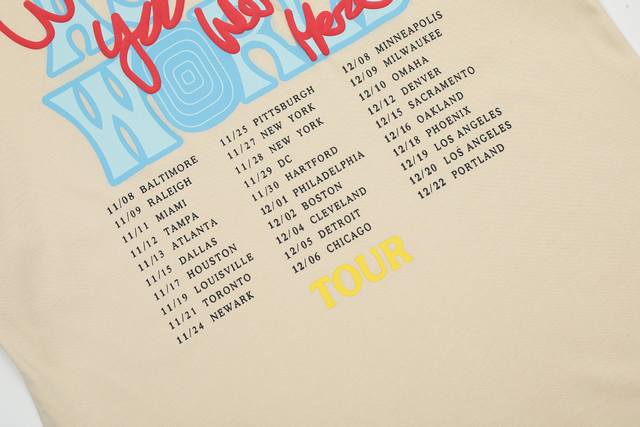 You Were Here
WORLD
11/08 BALTIMORE
11/09 RALEIGH
11/11 MIAMI
11/12 TAMPA
11/13 ATLANTA
11/15 DALLAS
11/17 HOUSTON
11/19 LOUISVILLE
11/21 TORONTO
11/24 NEWARK
11/25 PITTSBURGH
11/27 NEW YORK
11/28 NEW YORK
11/29 DC
11/30 HARTFORD
12/01 PHILADELPHIA
12/02 BOSTON
12/04 CLEVELAND
12/05 DETROIT
12/06 CHICAGO
12/08 MINNEAPOLIS
12/09 MILWAUKEE
12/10 OMAHA
12/12 DENVER
12/15 SACRAMENTO
12/16 OAKLAND
12/18 PHOENIX
12/19 LOS ANGELES
12/20 LOS ANGELES
12/22 PORTLAND
TOUR